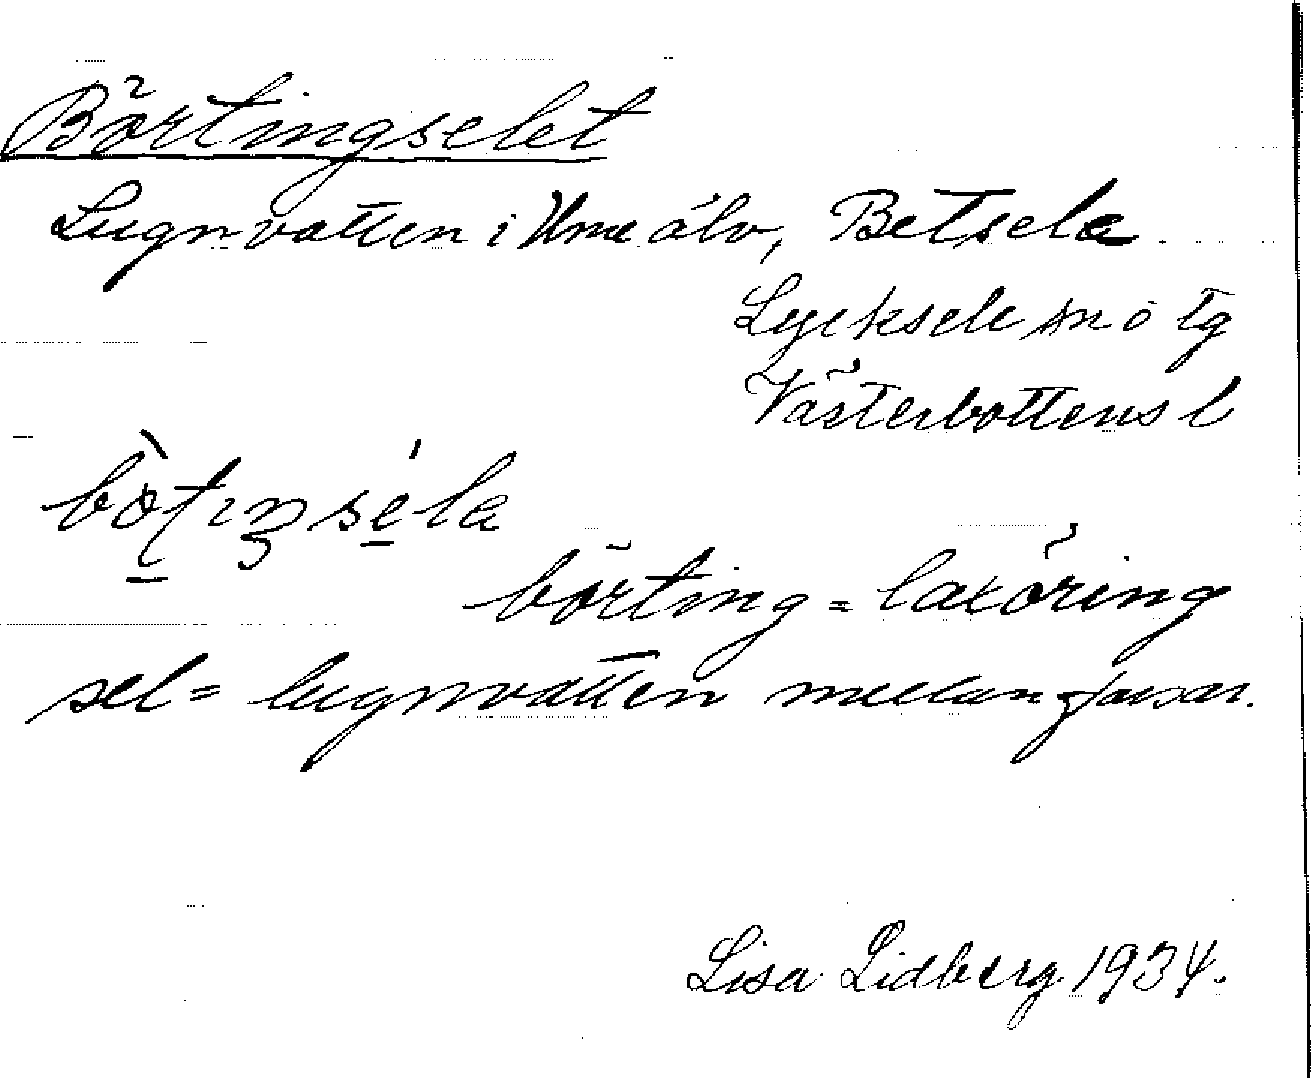 Börtingselet
Lugnvatten i Ume älv, Betsele
Lycksele sn o tg
Västerbottens l
börting = laxöring
sel = lugnvatten mellan forsar.
Lisa Lidberg 1934.